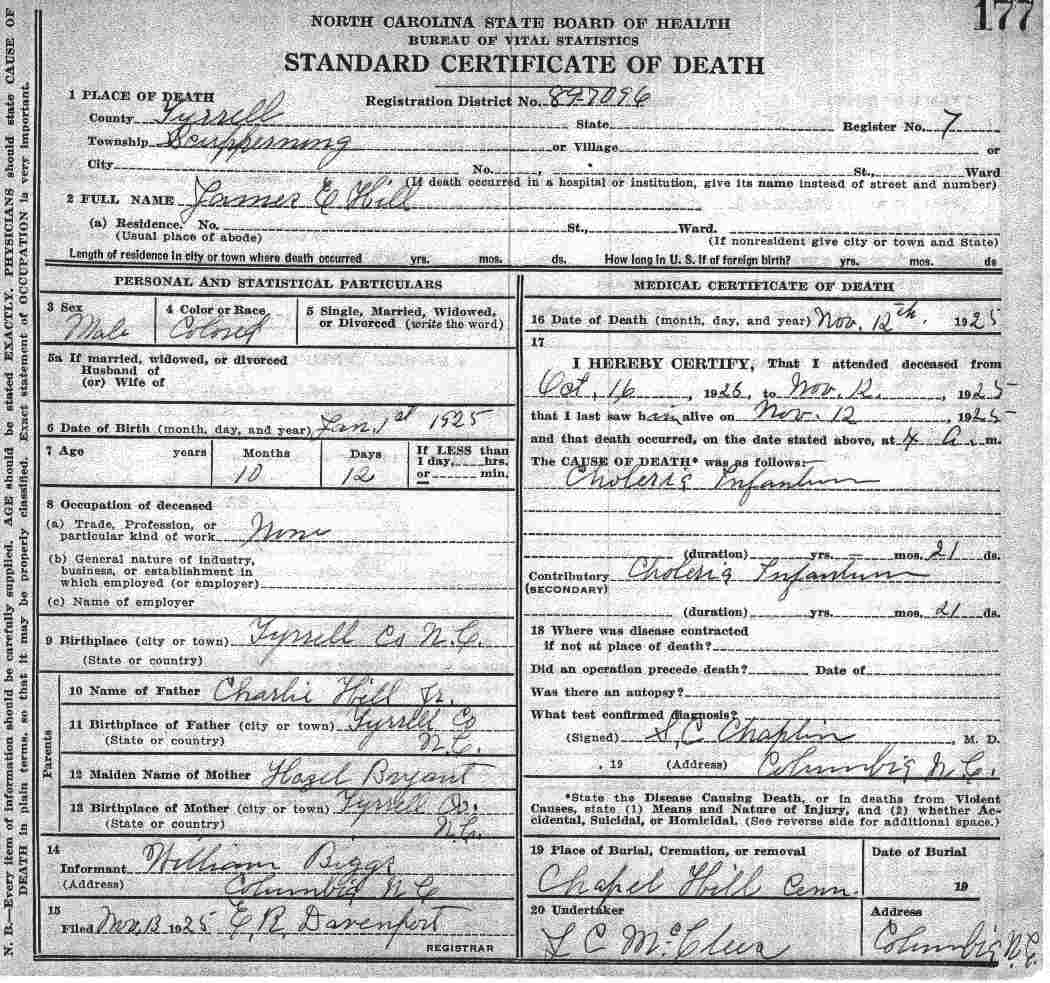 177
NORTH CAROLINA STATE BOARD OF HEALTH
BUREAU OF VITAL STATISTICS
STANDARD CERTIFICATE OF DEATH
1 PLACE OF DEATH Registration District No. 89-7096
County Tyrrell State Register No. 7
Township Scupperning or Village or
City No. , St., Ward
(If death occurred in a hospital or institution, give its name instead of street and number)
2 FULL NAME James E Hill
(a) Residence. No. St., Ward.
(Usual place of abode) (If nonresident give city or town and State)
Length of residence in city or town where death occurred yrs. mos. ds. How long in U. S. if of foreign birth? yrs. mos. ds
PERSONAL AND STATISTICAL PARTICULARS
3 Sex 4 Color or Race 5 Single, Married, Widowed,
or Divorced (write the word)
Male Colored
5a If married, widowed, or divorced
Husband of
(or) Wife of
6 Date of Birth (month, day, and year) Jan. 1st 1925
7 Age years Months Days If LESS than
1 day, hrs.
or min.
10 12
8 Occupation of deceased
(a) Trade, Profession, or
particular kind of work None
(b) General nature of industry,
business, or establishment in
which employed (or employer)
(c) Name of employer
9 Birthplace (city or town) Tyrrell Co N.C.
(State or country)
Parents
10 Name of Father Charlie Hill Jr.
11 Birthplace of Father (city or town) Tyrrell Co
(State or country) N.C.
12 Maiden Name of Mother Hazel Bryant
13 Birthplace of Mother (city or town) Tyrrell Co.
(State or country) N.C.
14
Informant William Biggs
(Address) Columbia N C
15
Filed Nov. 13 1925 E. R. Davenport
REGISTRAR
MEDICAL CERTIFICATE OF DEATH
16 Date of Death (month, day, and year) Nov. 12th. 1925
17
I HEREBY CERTIFY, That I attended deceased from
Oct. 16, 1925, to Nov. 12., 1925
that I last saw him alive on Nov. 12, 1925
and that death occurred, on the date stated above, at 4 A. m.
The CAUSE OF DEATH* was as follows:
Choleria Infantum
(duration) yrs. mos. 21 ds.
Contributory Choleria Infantum
(SECONDARY)
(duration) yrs. mos. 21 ds.
18 Where was disease contracted
if not at place of death?
Did an operation precede death? Date of
Was there an autopsy?
What test confirmed diagnosis?
(Signed) S. C. Chaplin, M. D.
, 19 (Address) Columbia N.C.
*State the Disease Causing Death, or in deaths from Violent
Causes, state (1) Means and Nature of Injury, and (2) whether Ac-
cidental, Suicidal, or Homicidal. (See reverse side for additional space.)
19 Place of Burial, Cremation, or removal Date of Burial
Chapel Hill Cem. 19
20 Undertaker Address
L C Columbia N.C.
N. B.—Every item of information should be carefully supplied. AGE should be stated EXACTLY. PHYSICIANS should state CAUSE OF
DEATH in plain terms, so that it may be properly classified. Exact statement of OCCUPATION is very important.